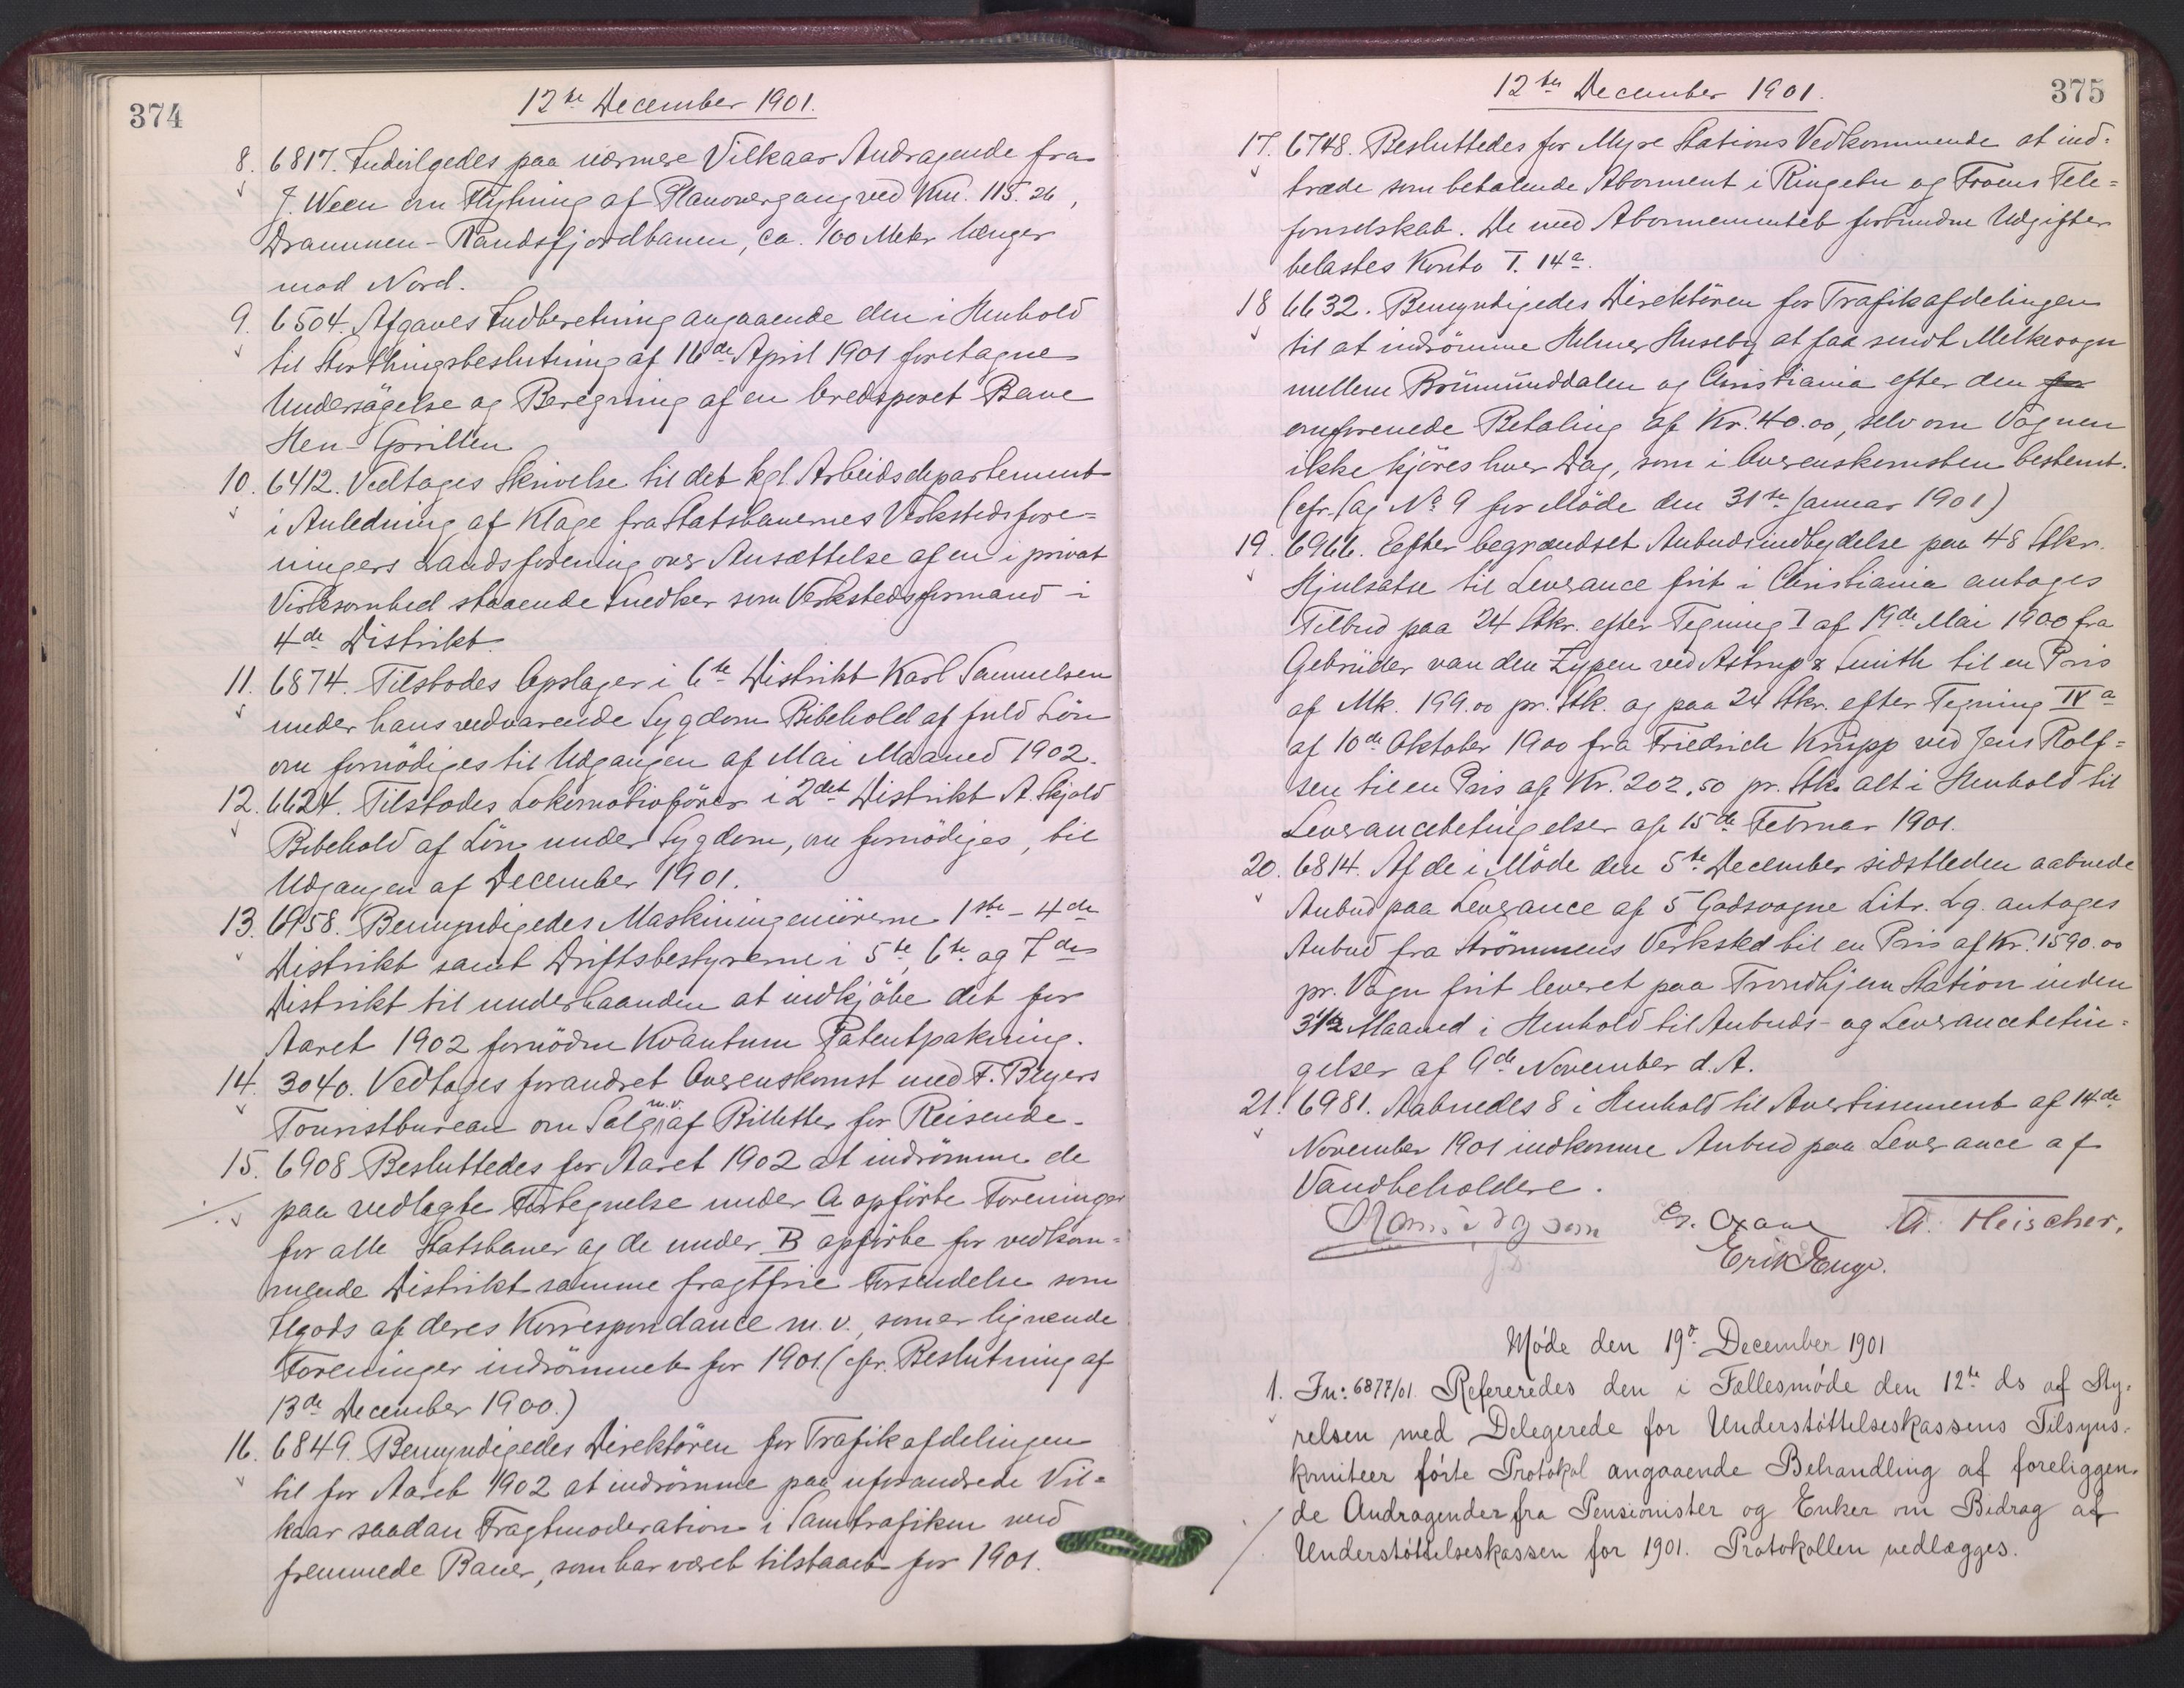 374
12te December 1901.
8. 6817. Indvilgedes paa nærmere Vilkaar Andragende fra
J. Ween om Flytning af Planovergang ved Km. 115.26,
Drammen-Randsfjordbanen, ca. 100 Meter længer
mod Nord.
9. 6504. Afgaves Indberetning angaaende den i Henhold
til Storthingsbeslutning af 16de April 1901 foretagne
Undersøgelse og Beregning af en bredsporet Bane
Hen-Gpillen
10. 6412. Vedtages Skrivelse til det kgl. Arbeidsdepartement
i Anledning af Klage fra Statsbanernes Verkstedsfore=
ningers Landsforening over Ansættelse af en i privat
Virksomhed staaende Snedker som Verkstedsformand i
4de Distrikt.
11. 6874. Tilstodes Opslager i 6te Distrikt Karl Samuelsen
under hans vedvarende Sygdom Bibehold af fuld Løn
om fornødiges til Udgangen af Mai Maaned 1902.
12. 6624. Tilstodes Lokomotivfører i 2det Distrikt A. Skjold
Bibehold af Løn under Sygdom, om fornødiges, til
Udgangen af December 1901.
13. 6958. Bemyndigedes Maskiningeniørerne 1ste - 4de
Distrikt samt Driftsbestyrerne i 5te, 6te og 7de
Distrikt til underhaanden at indkjøbe det for
Aaret 1902 fornødne Kvantum Patentpakning.
14. 3040. Vedtages forandret Overenskomst med F. Beyers
Touristbureau om Salg m.v. af Billetter for Reisende.
15. 6908 Besluttedes for Aaret 1902 at indrømme de
paa vedlagte Fortegnelse under A opførte Foreninger
for alle Statsbaner og de under B opførte for vedkom=
mende Distrikt samme fragtfrie Forsendelse som
Ilgods af deres Korrespondance m.v., som er lignende
Foreninger indrømmet for 1901. (cfr. Beslutning af
13de December 1900.)
16. 6849. Bemyndigedes Direktøren for Trafikafdelingen
til for Aaret 1902 at indrømme paa uforandrede Vil=
kaar saadan Fragtmoderation i Samtrafiken med
fremmede Baner, som har været tilstaaet for 1901.
375
12te December 1901.
17. 6748. Besluttedes for Myre Stations Vedkommende at ind=
træde som betalende Abonnent i Ringebu og Froens Tele=
fonselskab. De med Abonnementet forbundne Udgifter
belastes Konto T. 14a.
18 6632. Bemyndigedes Direktøren for Trafikafdelingen
til at indrømme Helmer Huseby at faa sendt Melkevogn
mellem Brümünddalen og Christiania efter den
omforenede Betaling af Kr. 40.00, selv om Vognen
ikke kjøres hver Dag, som i Overenskomsten bestemt.
(cfr. Sag No 9 for Møde den 31te Januar 1901)
19. 6966. Efter begrændset Anbudsindbydelse paa 48 Stkr.
Hjulsatse til Leverance frit i Christiania antages
Tilbud paa 24 Stkr. efter Tegning I af 19de Mai 1900 fra
Gebrüder van den Zypen ved Astrup & Smith til en Pris
af Mk. 199.00 pr. Stk. og paa 24 Stkr. efter Tegning IV a
af 10de Oktober 1900 fra Friedrich Krüpp ved Jens Rolf=
sen til en Pris af Kr. 202,50 pr. Stk. alt i Henhold til
Leverancebetingelser af 15de Februar 1901.
20. 6814. Af de i Møde den 5te December sidstleden aabnede
Anbud paa Leverance af 5 Godsvogne Litr. Lg. antages
Anbud fra Strømmens Verksted til en Pris af Kr. 1590.00
pr. Vogn frit leveret paa Trondhjem Station inden
3 1/2 Maaned i Henhold til Anbuds- og Leverancebetin=
gelser af 9de November d.A.
21. 6981. Aabnedes 8 i Henhold til Avertissement af 14de
November 1901 indkomne Anbud paa Leverance af
Vandbeholdere.
A. Fleischer.
Erik Enge.
Møde den 19de December 1901
1. Jn: 6877/01. Refereredes den i Fællesmøde den 12te ds af Sty=
relsen med Delegerede for Understøttelseskassens Tilsyns=
komiteer førte Protokol angaaende Behandling af foreliggen=
de Andragender fra Pensionister og Enker om Bidrag af
Understøttelseskassen for 1901. Protokollen vedlægges.